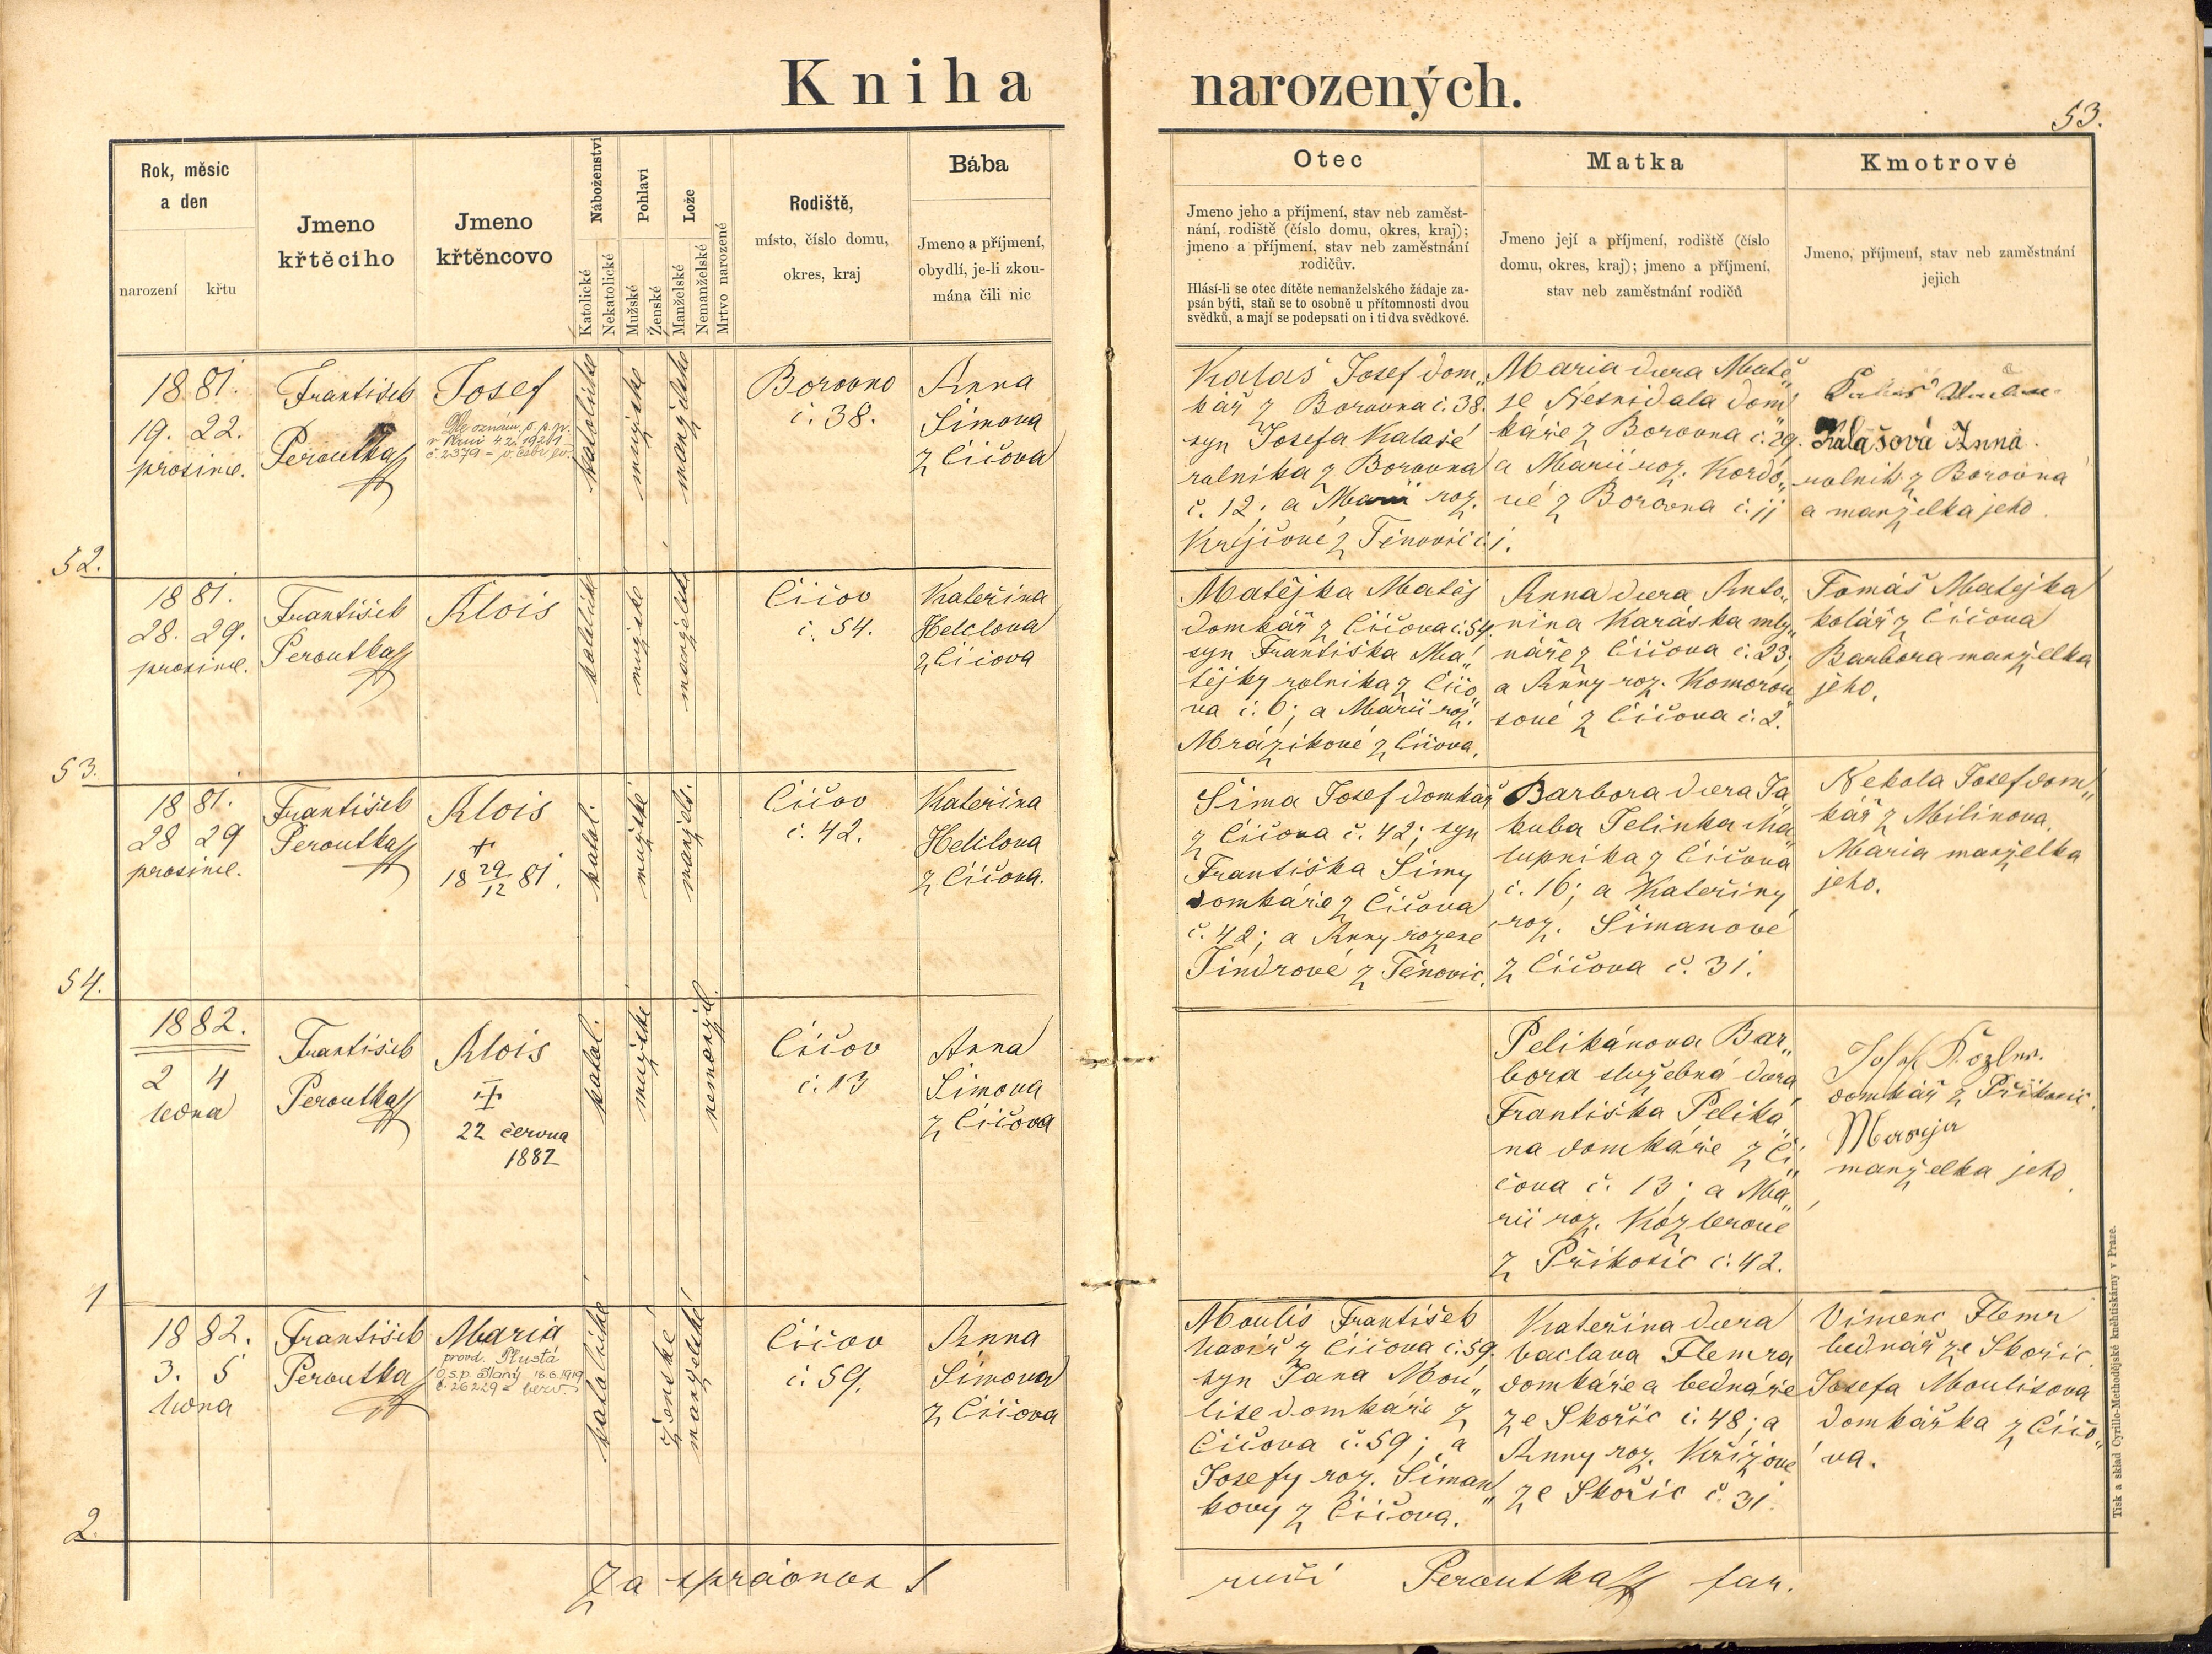 Kniha narozených.
53.
Rok, měsíc
a den
narození
křtu
Jmeno
křtěcího
Jmeno
křtěncovo
Náboženství
Katolické
Nekatolické
Pohlaví
Mužské
Ženské
Lože
Manželské
Nemanželské
Mrtvo narozené
Rodiště,
místo, číslo domu,
okres, kraj
Bába
Jmeno a příjmení,
obydlí, je-li zkou-
mána čili nic
Otec
Jmeno jeho a příjmení, stav neb zaměst-
nání, rodiště (číslo domu, okres, kraj);
jmeno a příjmení, stav neb zaměstnání
rodičův.
Hlásí-li se otec dítěte nemanželského žádaje za-
psán býti, staň se to osobně u přítomnosti dvou
svědků, a mají se podepsati on i ti dva svědkové.
Matka
Jmeno její a příjmení, rodiště (číslo
domu, okres, kraj); jmeno a příjmení,
stav neb zaměstnání rodičů
Kmotrové
Jmeno, příjmení, stav neb zaměstnání
jejich
52.
1881.
19. 22.
prosince.
František
Peroutka
Josef
katolické
mužské
manželské
Borovno
č. 38.
Anna
Šimova
z Číčova
Kalaš Josef dom„
kář z Borovna č. 38.
syn Josefa Kalaše
rolníka z Borovna
č. 12. a Marii roz.
Krejčové z Těnovic č. 1.
Maria dcera Matě„
je Nesnídala dom„
káře z Borovna č. 29.
a Marii roz. Kordo„
vé z Borovna č. 11
Kalašová Anna.
rolník z Borovna
a manželka jeho.
53.
1881.
28. 29.
prosince.
František
Peroutka
Alois
katolické
mužské
manželské
Číčov
č. 54.
Kateřina
Helclova
z Číčova
Matějka Matěj
domkář z Číčova č. 54.
syn Františka Ma„
tějky rolníka z Číčo„
va č. 6; a Marii roz.
Mrázikové z Číčova.
Anna dcera Anto„
nína Karáska mly„
náře z Číčova č. 23.
a Anny roz. Komorou„
sové z Číčova č. 2.
Tomáš Matejka
kolář z Číčova
Barbora manželka
jeho.
54.
1881.
28 29
prosince.
František
Peroutka
Alois
+
18 29/12 81.
katol.
mužské
manžels.
Číčov
č. 42.
Kateřina
Helclova
z Číčova.
Šima Josef domkář
z Číčova č. 42; syn
Františka Šimy
domkáře z Číčova
č. 42; a Anny rozene
Tindrové z Těnovic.
Barbora dcera Ja„
kuba Jelinka cha„
lupníka z Číčova
č. 16; a Kateřiny
roz. Šimanové
z Číčova č. 31.
Nekola Josef dom„
kář z Milínova.
Maria manželka
jeho.
1
1882.
2 4
ledna
František
Peroutka
Alois
+
22 června
1882
katol.
mužské
nemanžel.
Číčov
č. 13
Anna
Šimova
z Číčova
Pelikánova Bar„
bora služebná dcera
Františka Peliká„
na domkáře z Čí„
čova č. 13; a Ma„
rii roz. Kozlerové
z Příkosic č. 42.
Josef Kozler.
domkář z Příkosic.
Maryja
manželka jeho
2.
1882.
3. 5
ledna
František
Peroutka
Maria
provd. Plustá
O.s.p. Slaný 18.6.1919
č. 26229 =
katolické
ženské
manželské
Číčov
č. 59.
Anna
Šimova
z Číčova
Moulis František
kovář z Číčova č. 59.
syn Jana Mou„
lise domkáře z
Číčova č. 59; a
Josefy roz. Šiman„
kovy z Číčova.
Kateřina dcera
Vaclava Flemra
domkáře a bednáře
ze Skořic č. 48; a
Anny roz. Křížové
ze Skořic č. 31.
Vincenc Flemr
bednář ze Skořic.
Josefa Moulisova
domkářka z Číčo„
va.
Za správnost ručí Peroutka far.
Tisk a sklad Cyrillo-Methodějské knihtiskárny v Praze.